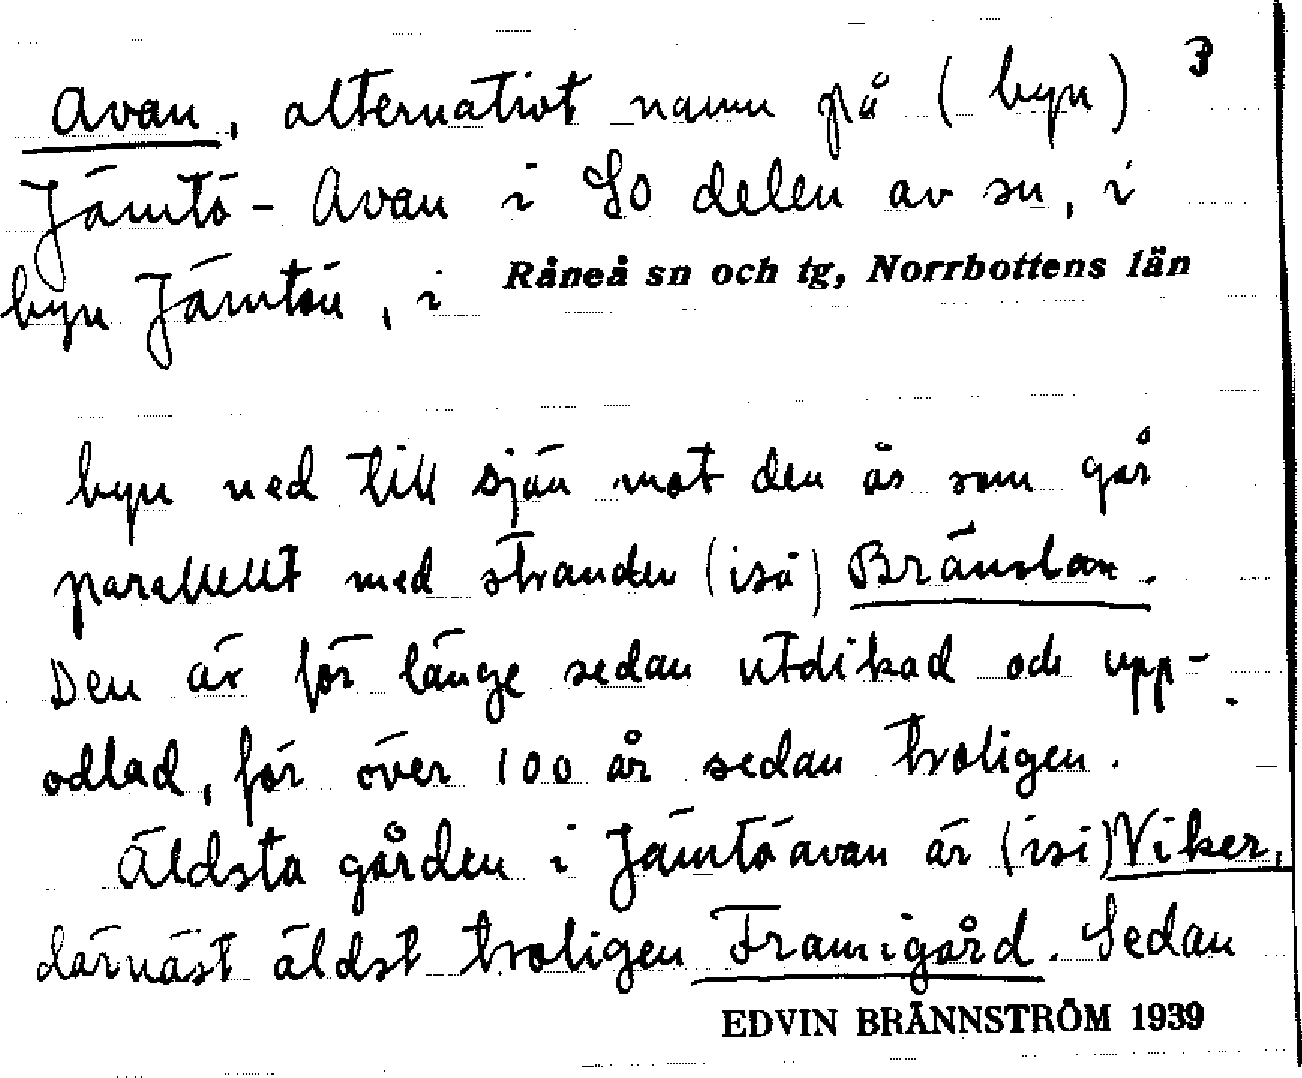 3
Avan, alternativt namn på (byn)
Jämtö-Avan i SO delen av sn, i
byn Jämtön, i Råneå sn och tg, Norrbottens län
byn ned till sjön mot den ås som går
parallellt med stranden (isä)
Den är för länge sedan utdikad och upp-
odlad, för över 100 år sedan troligen.
Äldsta gården i Jämtöavan är (isi) Viker,
därnäst äldst troligen Framigård. Sedan
EDVIN BRÄNNSTRÖM 1939